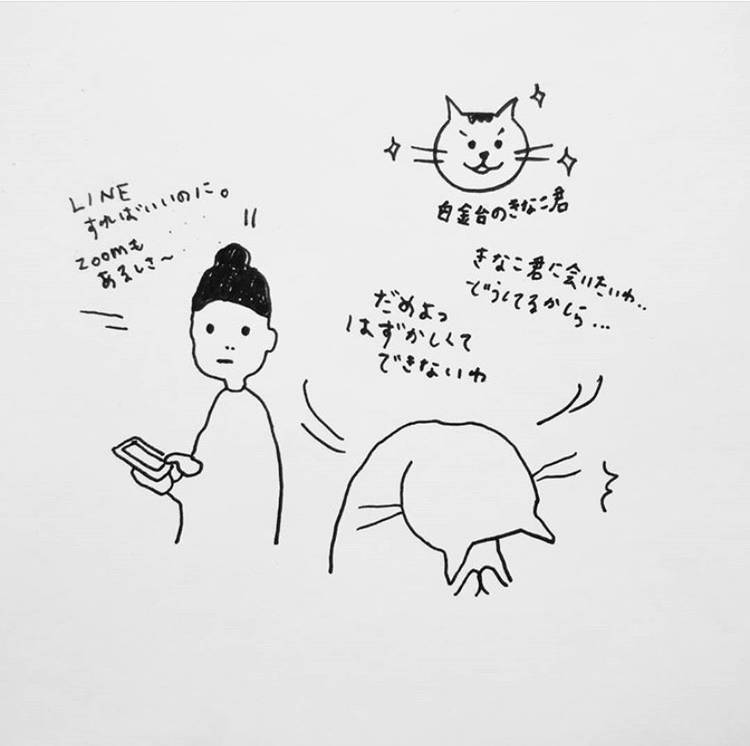 白金台のきなこ君
LINE
すればいいのに。
zoomも
あるしさ〜
きなこ君に会いたいわ..
どうしてるかしら...
だめよっ
はずかしくて
できないわ